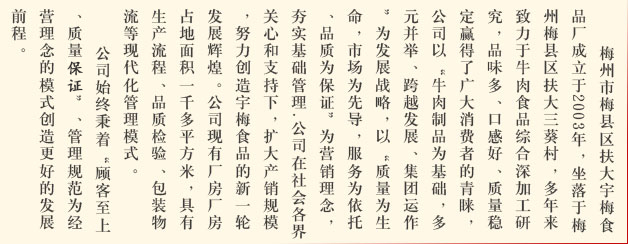 梅州市梅县区扶大宇梅食
品厂成立于2003年，坐落于梅
州梅县区扶大三葵村，多年来
致力于牛肉食品综合深加工研
究，品味多、口感好、质量稳
定赢得了广大消费者的青睐，
公司以“牛肉制品为基础，多
元并举、跨越发展、集团运作
”为发展战略，以“质量为生
命，市场为先导，服务为依托
、品质为保证”为营销理念，
夯实基础管理.公司在社会各界
关心和支持下，扩大产销规模
，努力创造宇梅食品的新一轮
发展辉煌。公司现有厂房厂房
占地面积一千多平方米，具有
生产流程、品质检验、包装物
流等现代化管理模式。
公司始终秉着“顾客至上
、质量保证”、管理规范为经
营理念的模式创造更好的发展
前程。